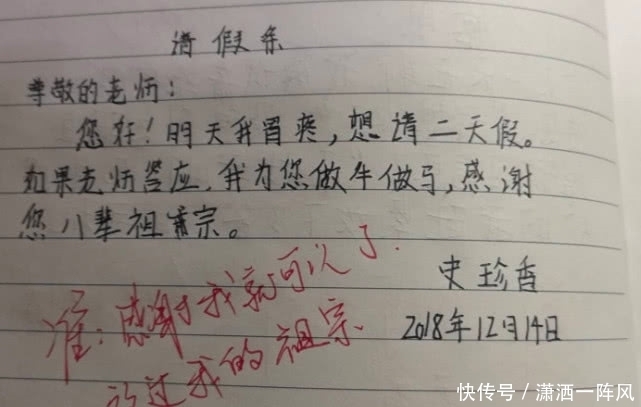 请假条
尊敬的老师：
您好！明天我胃疼，想请二天假。
如果老师答应，我为您做牛做马，感谢
您八辈祖宗。
史珍香
2018年12月14日
准：感谢我就可以了.
放过我的祖宗
快传号／潇洒一阵风